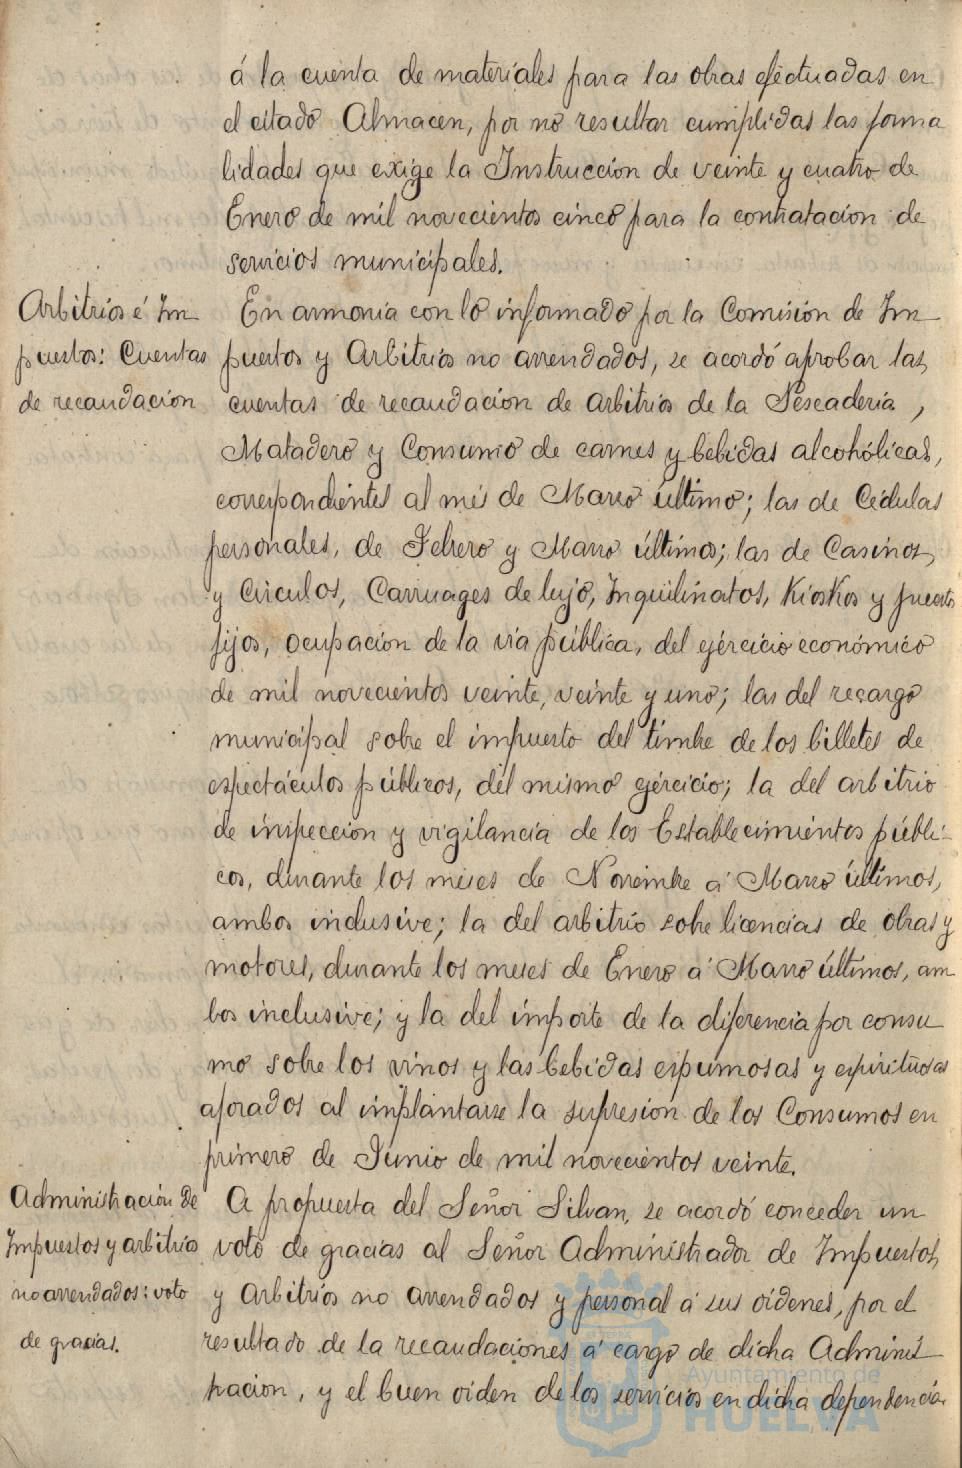 á la cuenta de materiales para las obras efectuadas en
el citado Almacen, por no resultar cumplidas las forma
lidades que exige la Instrucción de veinte y cuatro de
Enero de mil novecientos cinco para la contratacion de
servicios municipales.
Arbitrios é Im
puestos: Cuentas
de recaudacion
En armonia con lo informado por la Comisión de Im
puestos y Arbitrios no arrendados, se acordó aprobar las
cuentas de recaudacion de arbitrios de la Pescaderia,
Matadero y Consumo de carnes y bebidas alcohólicas,
correspondientes al més de Marzo último; las de Cédulas
personales, de Febrero y Marzo últimos; las de Casinos
y Circulos, Carruages de lujo, Inquilinatos, Kioskos y puestos
fijos, ocupación de la via pública, del ejercicio económico
de mil novecientos veinte, veinte y uno; las del recargo
municipal sobre el impuesto del timbre de los billetes de
espectáculos públicos, del mismo ejercicio; la del arbitrio
de inspeccion y vigilancia de los Establecimientos públi-
cos, durante los meses de Noviembre á Marzo últimos,
ambos inclusive; la del arbitrio sobre licencias de obras y
motores, durante los meses de Enero á Marzo últimos, am
bos inclusive; y la del importe de la diferencia por consu
mo sobre los vinos y las bebidas espumosas y espirituosas
aforados al implantarse la supresion de los Consumos en
primero de Junio de mil novecientos veinte.
Administración de
Impuestos y arbitrios
no arrendados: voto
de gracias.
A propuesta del Señor Silvan, se acordó conceder un
voto de gracias al Señor Administrador de Impuestos
y Arbitrios no arrendados y personal á sus ordenes, por el
resultado de la recaudaciones á cargo de dicha Adminis
tracion, y el buen orden de los servicios en dicha dependencia.
Ayuntamiento de
HUELVA